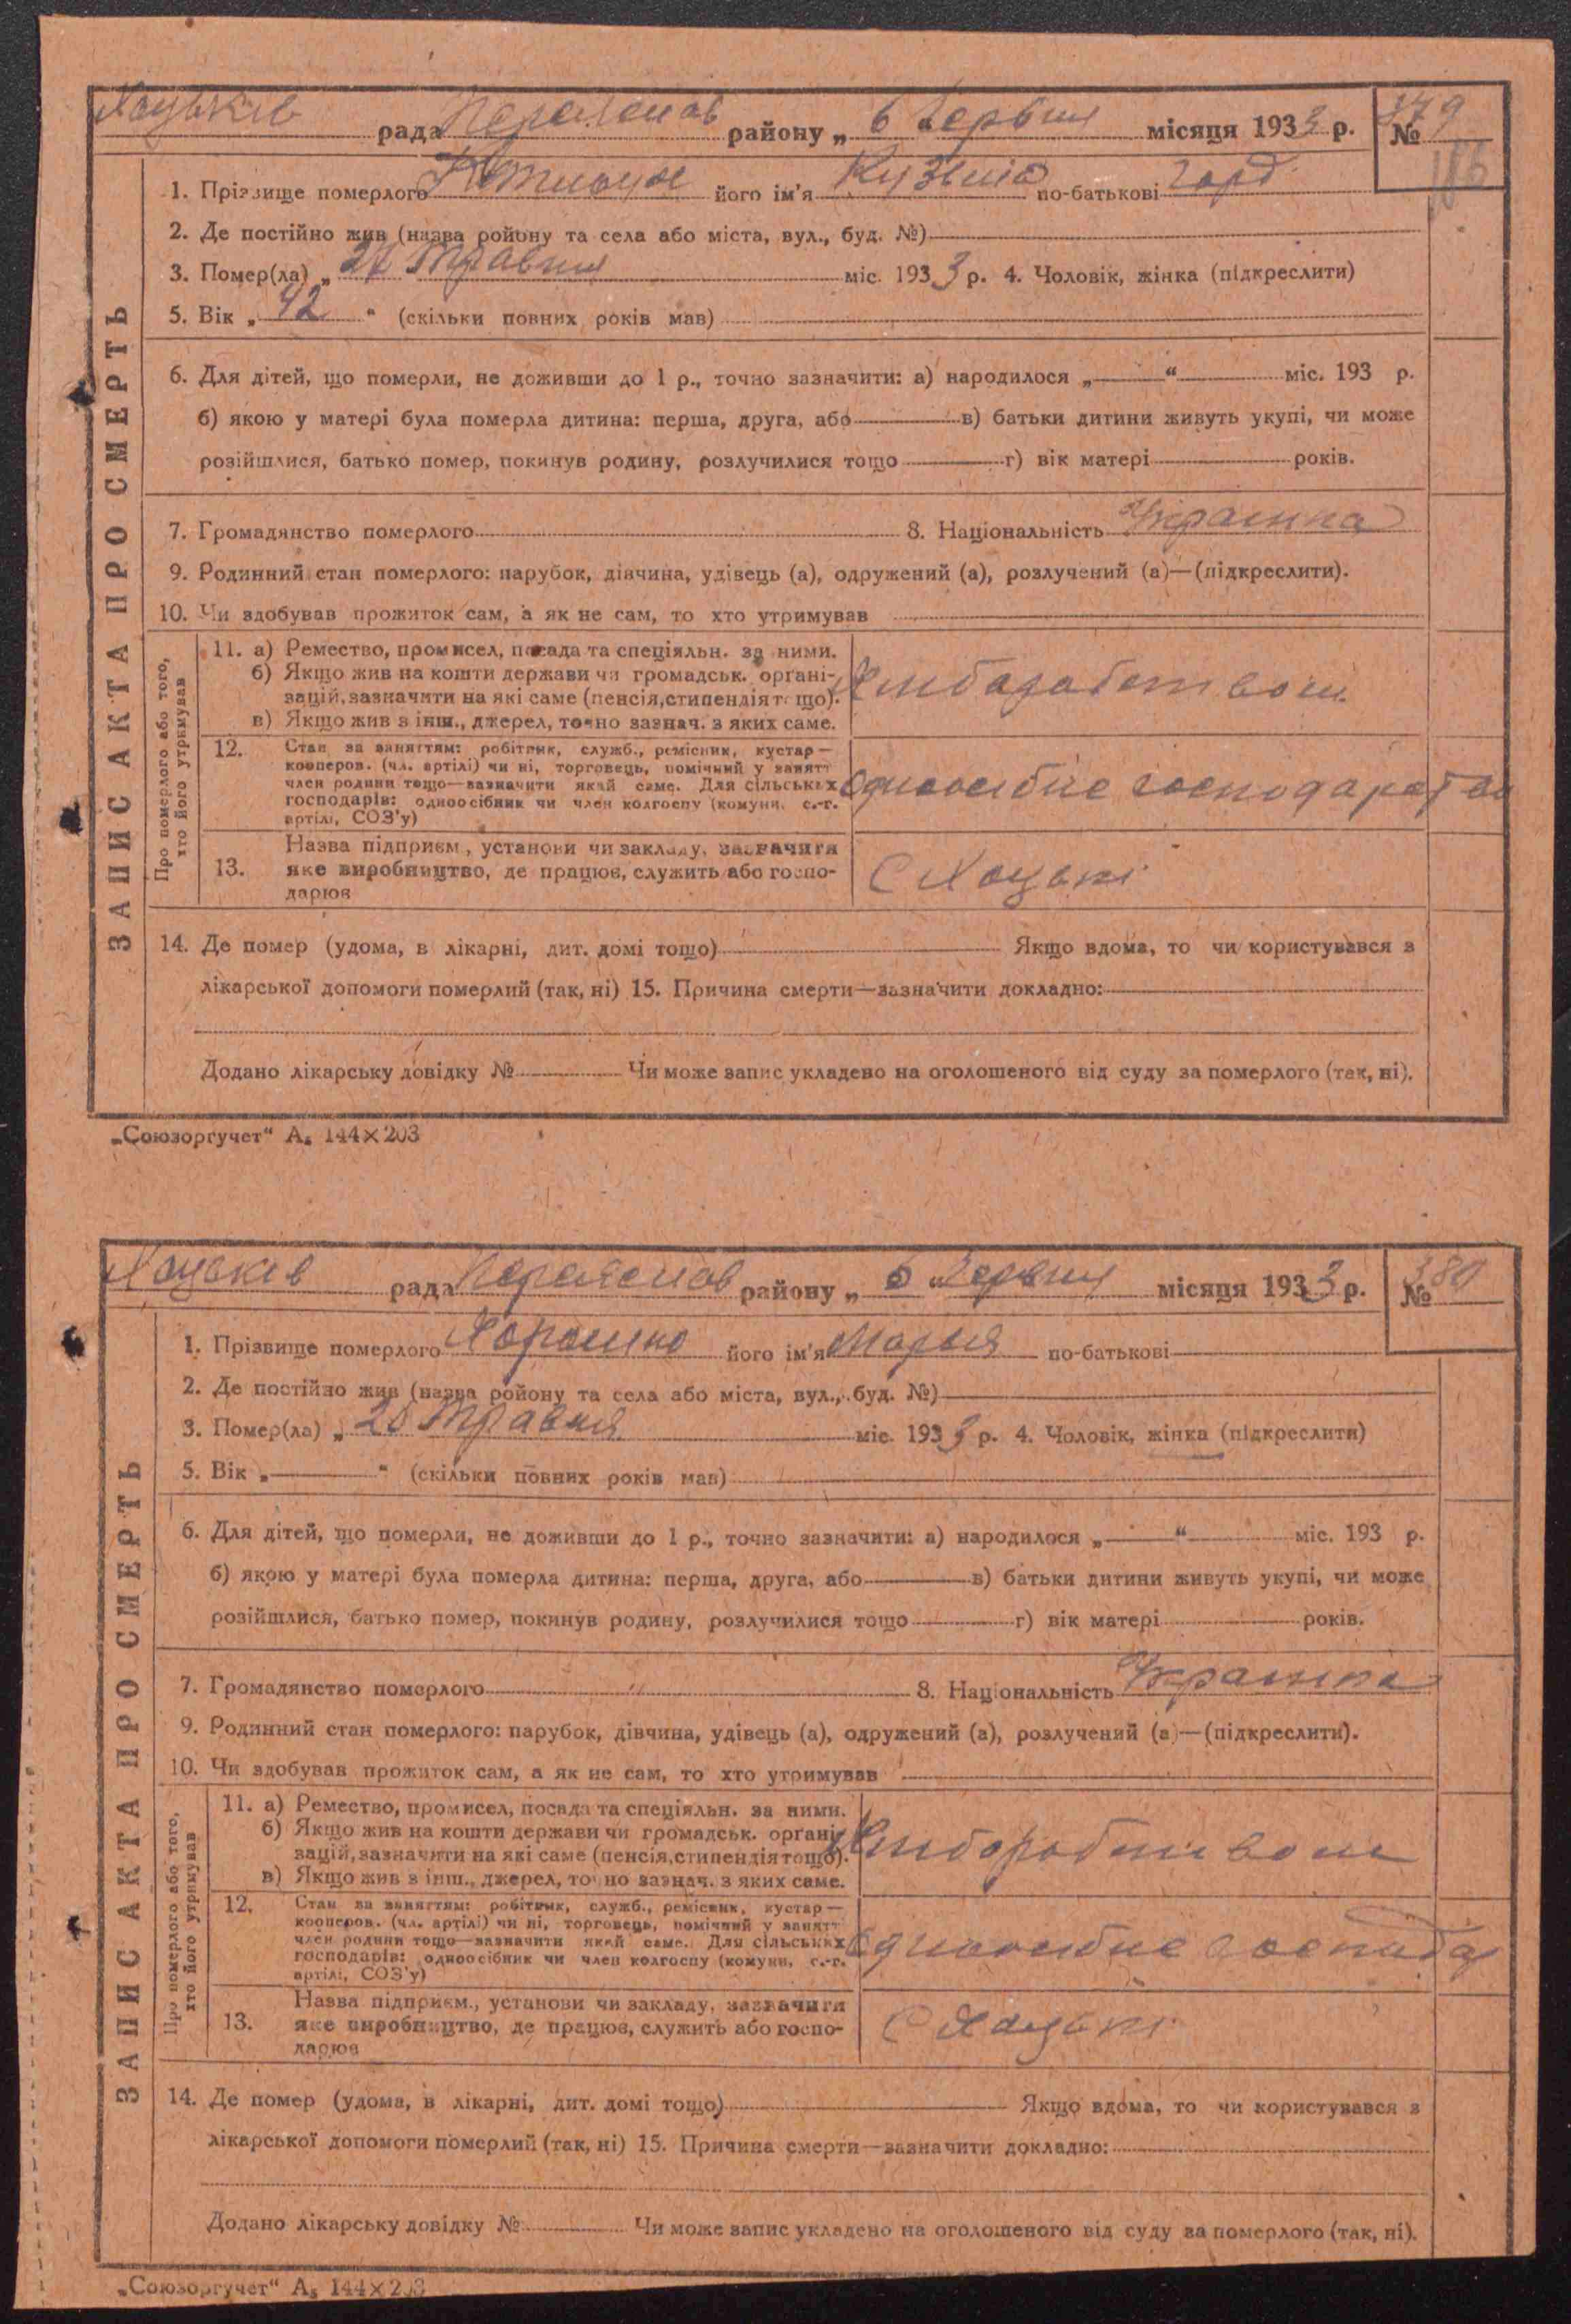 Хоцьків рада Переяслав району „ 6 " Червня місяця 1933 р. № 379
186
1. Прізвище померлого його ім'я Кузьма по-батькові
2. Де постійно жив (назва ройону та села або міста, вул., буд. №)
3. Помер(ла) „ Травня міс. 1933 р. 4. Чоловік, жінка (підкреслити)
5. Вік „ 42 “ (скільки повних років мав)
6. Для дітей, що померли, не доживши до 1 р., точно зазначити: а) народилося „ “ міс. 193 р.
б) якою у матері була померла дитина: перша, друга, або в) батьки дитини живуть укупі, чи може
розійшлися, батько помер, покинув родину, розлучилися тощо г) вік матері років.
7. Громадянство померлого 8. Національність Украинка
9. Родинний стан померлого: парубок, дівчина, удівець (а), одружений (а), розлучений (а)—(підкреслити).
10. Чи здобував прожиток сам, а як не сам, то хто утримував
ЗАПИС АКТА ПРО СМЕРТЬ
Про померлого або того,
хто його утримував
11. а) Ремество, промисел, посада та спеціяльн. за ними.
б) Якщо жив на кошти держави чи громадськ. органі-
зацій, зазначити на які саме (пенсія, стипендія тощо).
в) Якщо жив з інш., джерел, точно зазнач. з яких саме.
12. Стан за заняттям: робітник, служб., ремісник, кустар—
кооперов. (чл. артілі) чи ні, торговець, помічний у занятт
член родини тощо—зазначити який саме. Для сільських
господарів: одноосібник чи член колгоспу (комуни, с.-г.
артілі, СОЗ'у)
13. Назва підприєм., установи чи закладу, зазначити
яке виробництво, де працює, служить або госпо-
дарює
С Хоцьки
14. Де помер (удома, в лікарні, дит. домі тощо) Якщо вдома, то чи користувався з
лікарської допомоги померлий (так, ні) 15. Причина смерти—зазначити докладно:
Додано лікарську довідку № Чи може запис укладено на оголошеного від суду за померлого (так, ні).
„Союзоргучет“ А₅ 144×203
Хоцьків рада Переяслав району „ 6 " Червня місяця 1933 р. № 380
1. Прізвище померлого Хорошко його ім'я Марья по-батькові
2. Де постійно жив (назва ройону та села або міста, вул., буд. №)
3. Помер(ла) „ Травня міс. 1933 р. 4. Чоловік, жінка (підкреслити)
5. Вік „ “ (скільки повних років мав)
6. Для дітей, що померли, не доживши до 1 р., точно зазначити: а) народилося „ “ міс. 193 р.
б) якою у матері була померла дитина: перша, друга, або в) батьки дитини живуть укупі, чи може
розійшлися, батько помер, покинув родину, розлучилися тощо г) вік матері років.
7. Громадянство померлого 8. Національність Украинка
9. Родинний стан померлого: парубок, дівчина, удівець (а), одружений (а), розлучений (а)—(підкреслити).
10. Чи здобував прожиток сам, а як не сам, то хто утримував
ЗАПИС АКТА ПРО СМЕРТЬ
Про померлого або того,
хто його утримував
11. а) Ремество, промисел, посада та спеціяльн. за ними.
б) Якщо жив на кошти держави чи громадськ. органі-
зацій, зазначити на які саме (пенсія, стипендія тощо).
в) Якщо жив з інш., джерел, точно зазнач. з яких саме.
Хлиборобством
12. Стан за заняттям: робітник, служб., ремісник, кустар—
кооперов. (чл. артілі) чи ні, торговець, помічний у занятт
член родини тощо—зазначити який саме. Для сільських
господарів: одноосібник чи член колгоспу (комуни, с.-г.
артілі, СОЗ'у)
13. Назва підприєм., установи чи закладу, зазначити
яке виробництво, де працює, служить або госпо-
дарює
С Хоцьки
14. Де помер (удома, в лікарні, дит. домі тощо) Якщо вдома, то чи користувався з
лікарської допомоги померлий (так, ні) 15. Причина смерти—зазначити докладно:
Додано лікарську довідку № Чи може запис укладено на оголошеного від суду за померлого (так, ні).
„Союзоргучет“ А₅ 144×203